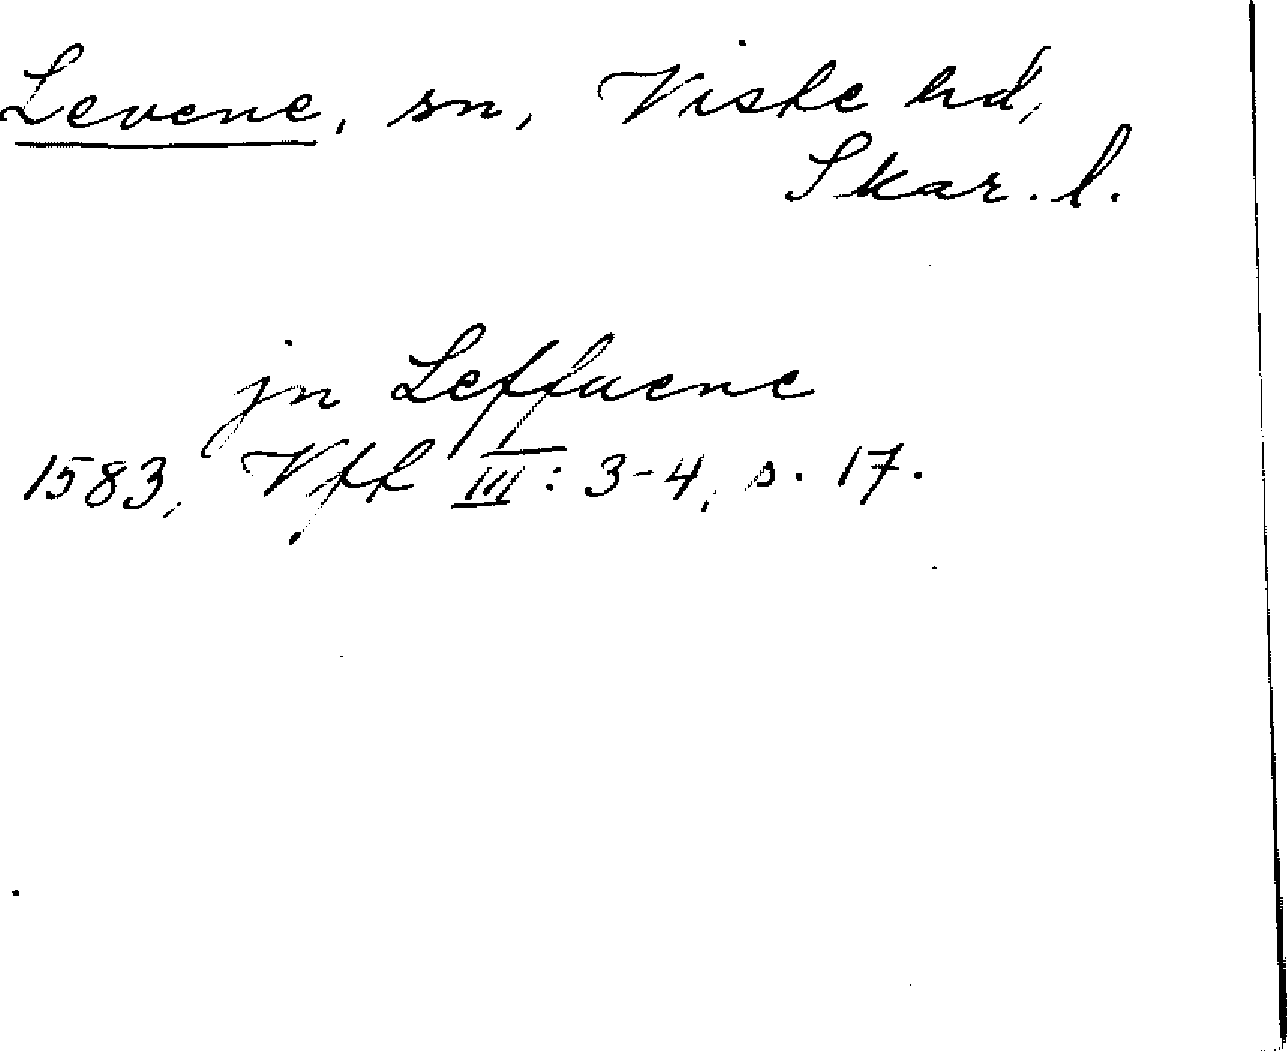 Levene, sn, Viske hd,
Skar. l.
jn Leffuene
1583, Vfk III: 3-4, s. 17.